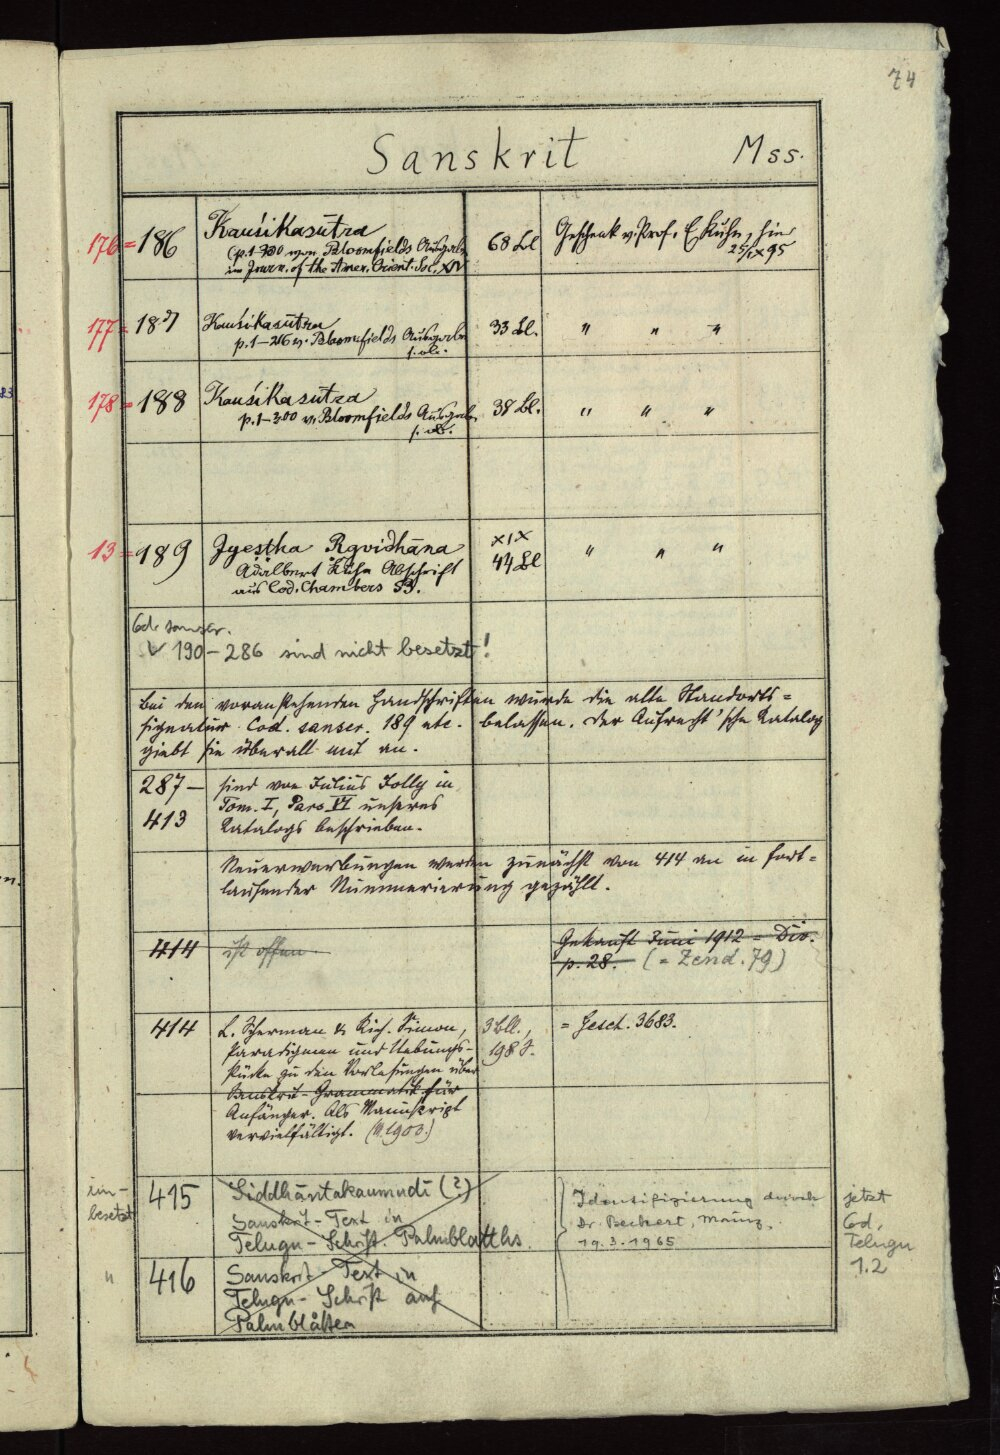 74
Sanskrit Mss.
176 = 186 Kauśikasūtra 68 Bl Geschenk v. Prof. E. Kuhn, hier
(p. 1–300 von Bloomfields Ausgabe 25/IX 95
im Journ. of the Amer. Orient. Soc. XIV
177 = 187 Kauśikasūtra 33 Bl. " " "
p. 1–216 v. Bloomfields Ausgabe
s. ob.
178 = 188 Kauśikasūtra 38 Bl. " " "
p. 1–300 v. Bloomfields Ausgabe
s. ob.
13 = 189 Jyeṣṭha Ṛgvidhāna XIX " " "
Adalbert Kuhn Abschrift 44 Bl
aus Cod. Chambers 53.
Cod. sanscr.
190–286 sind nicht besetzt!
Bei den voranstehenden Handschriften wurde die alte Standorts=
signatur Cod. sanscr. 189 etc. belassen. Der Aufrecht'sche Katalog
giebt sie überall mit an.
287– sind von Julius Jolly in
Tom. I, Pars VI unseres
413 Katalogs beschrieben.
Neuerwerbungen werden zunächst von 414 an in fort=
laufender Nummerierung gezählt.
414 ist offen Gekauft Juni 1912 = Div.
p. 28. (= Zend. 79)
414 L. Scherman & Rich. Simon, 3 Bll., = Gesch. 3683.
Paradigmen und Uebungs- 198 S.
stücke zu den Vorlesungen über
Sanskrit-Grammatik für
Anfänger. Als Manuskript
vervielfältigt. (M. 1903.)
un-
besetzt
415 Siddhāntakaumudī (?) Identifizierung durch jetzt
Sanskrit-Text in Dr. Bechert, Mainz, Cod.
Telugu-Schrift. Palmblatths. 19.3.1965 Telugu
1.2
" 416 Sanskrit-Text in
Telugu-Schrift auf
Palmblätter